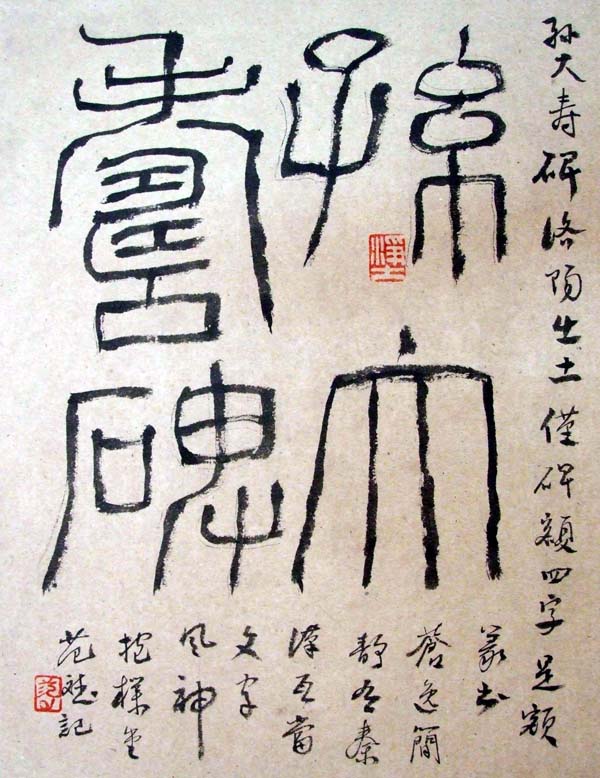 孫大
壽碑
孫大寿碑洛陽出土僅碑額四字是額
篆書
蒼逸簡
静有秦
漢瓦當
文字
風神
抱樸堂
范斌記